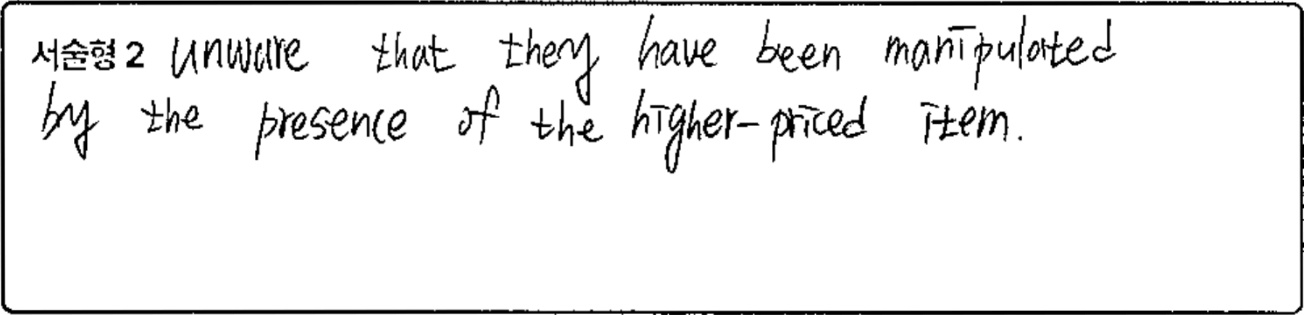 서술형 2 unware that they have been manipulated
by the presence of the higher-priced item.